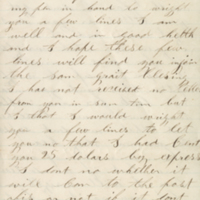 my pen in hand to wright
you a few lines I am
well and in good helth
and I hope these few
lines will find you injoin
the sam grait blesing
I has not recived no letter
from you in sum tim but
I that I would wright
you a few lines to let
you no that I had sent
you 25 dolars by express
I dont no whether it
will com to the post
or not if it dont